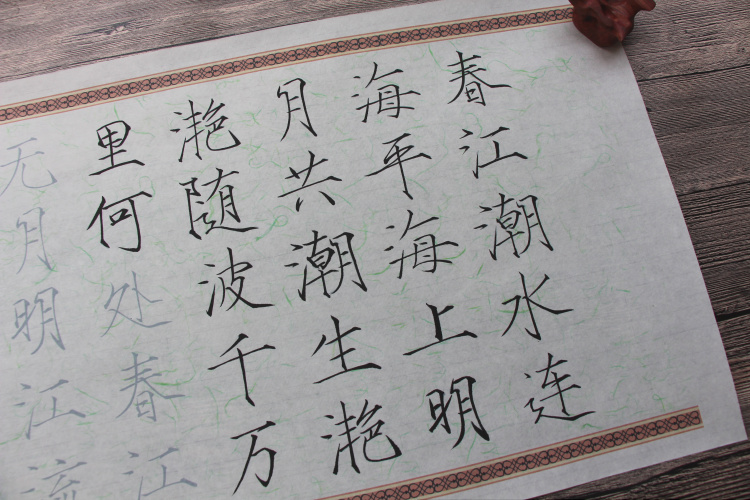 春江潮水连
海平海上明
月共潮生滟
滟随波千万
里何处春江
无月明江流